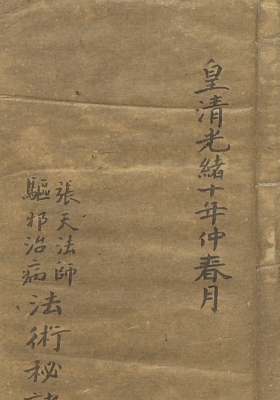 皇清光緒十年仲春月
張天法師
驅邪治病法術秘